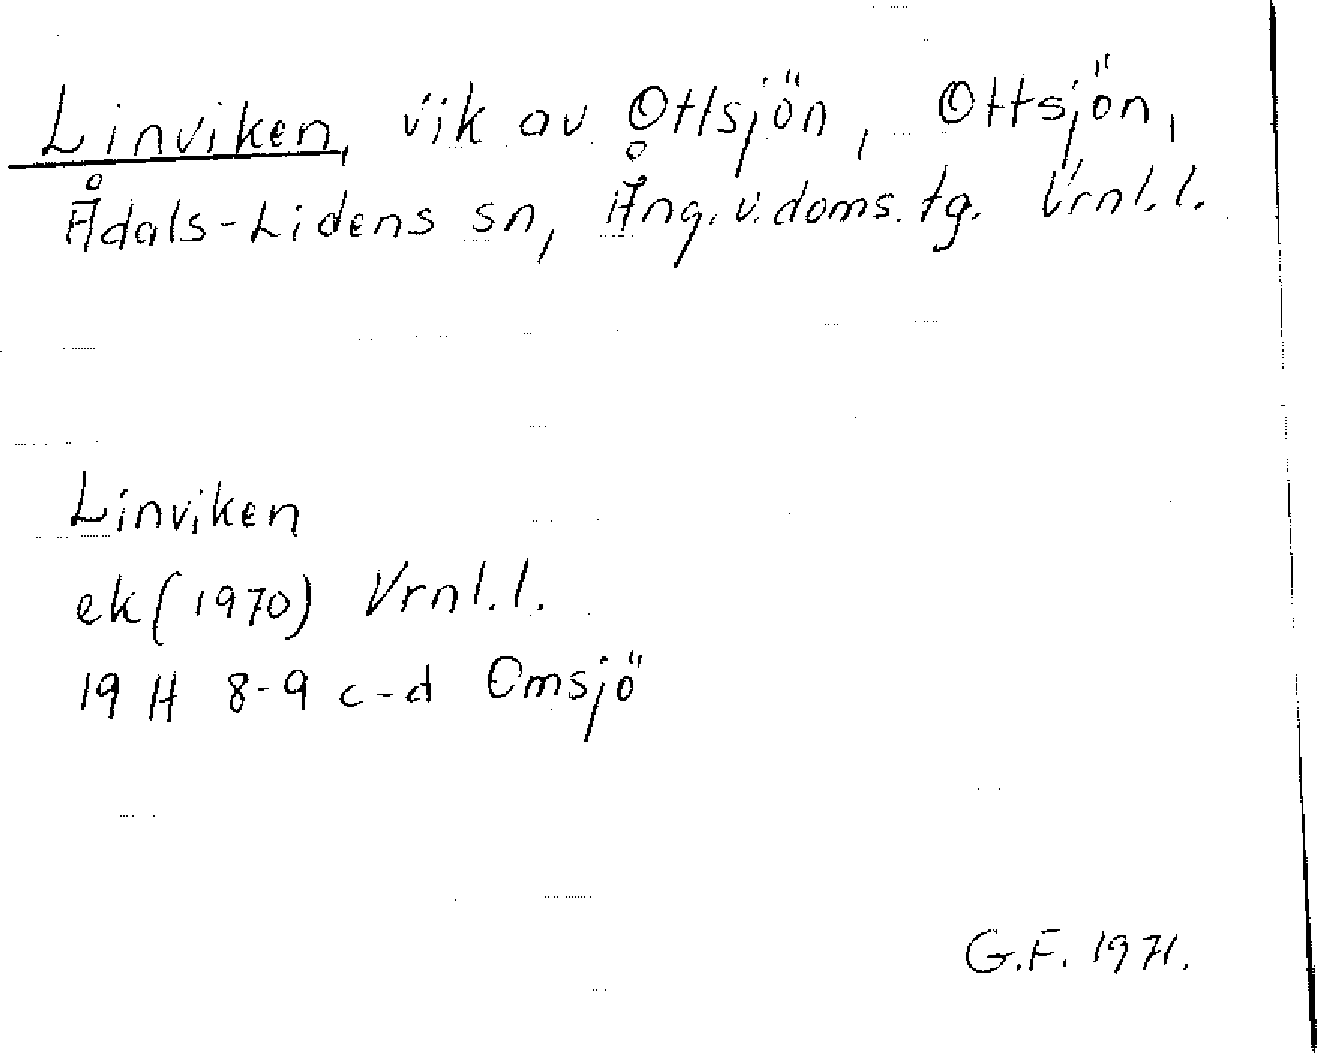 Linviken, vik av Ottsjön, Ottsjön,
Ådals-Lidens sn, Ång. v. doms. tg. Vrnl.l.
Linviken
ek (1970) Vrnl.l.
19 H 8-9 c-d Omsjö
G.F. 1971.